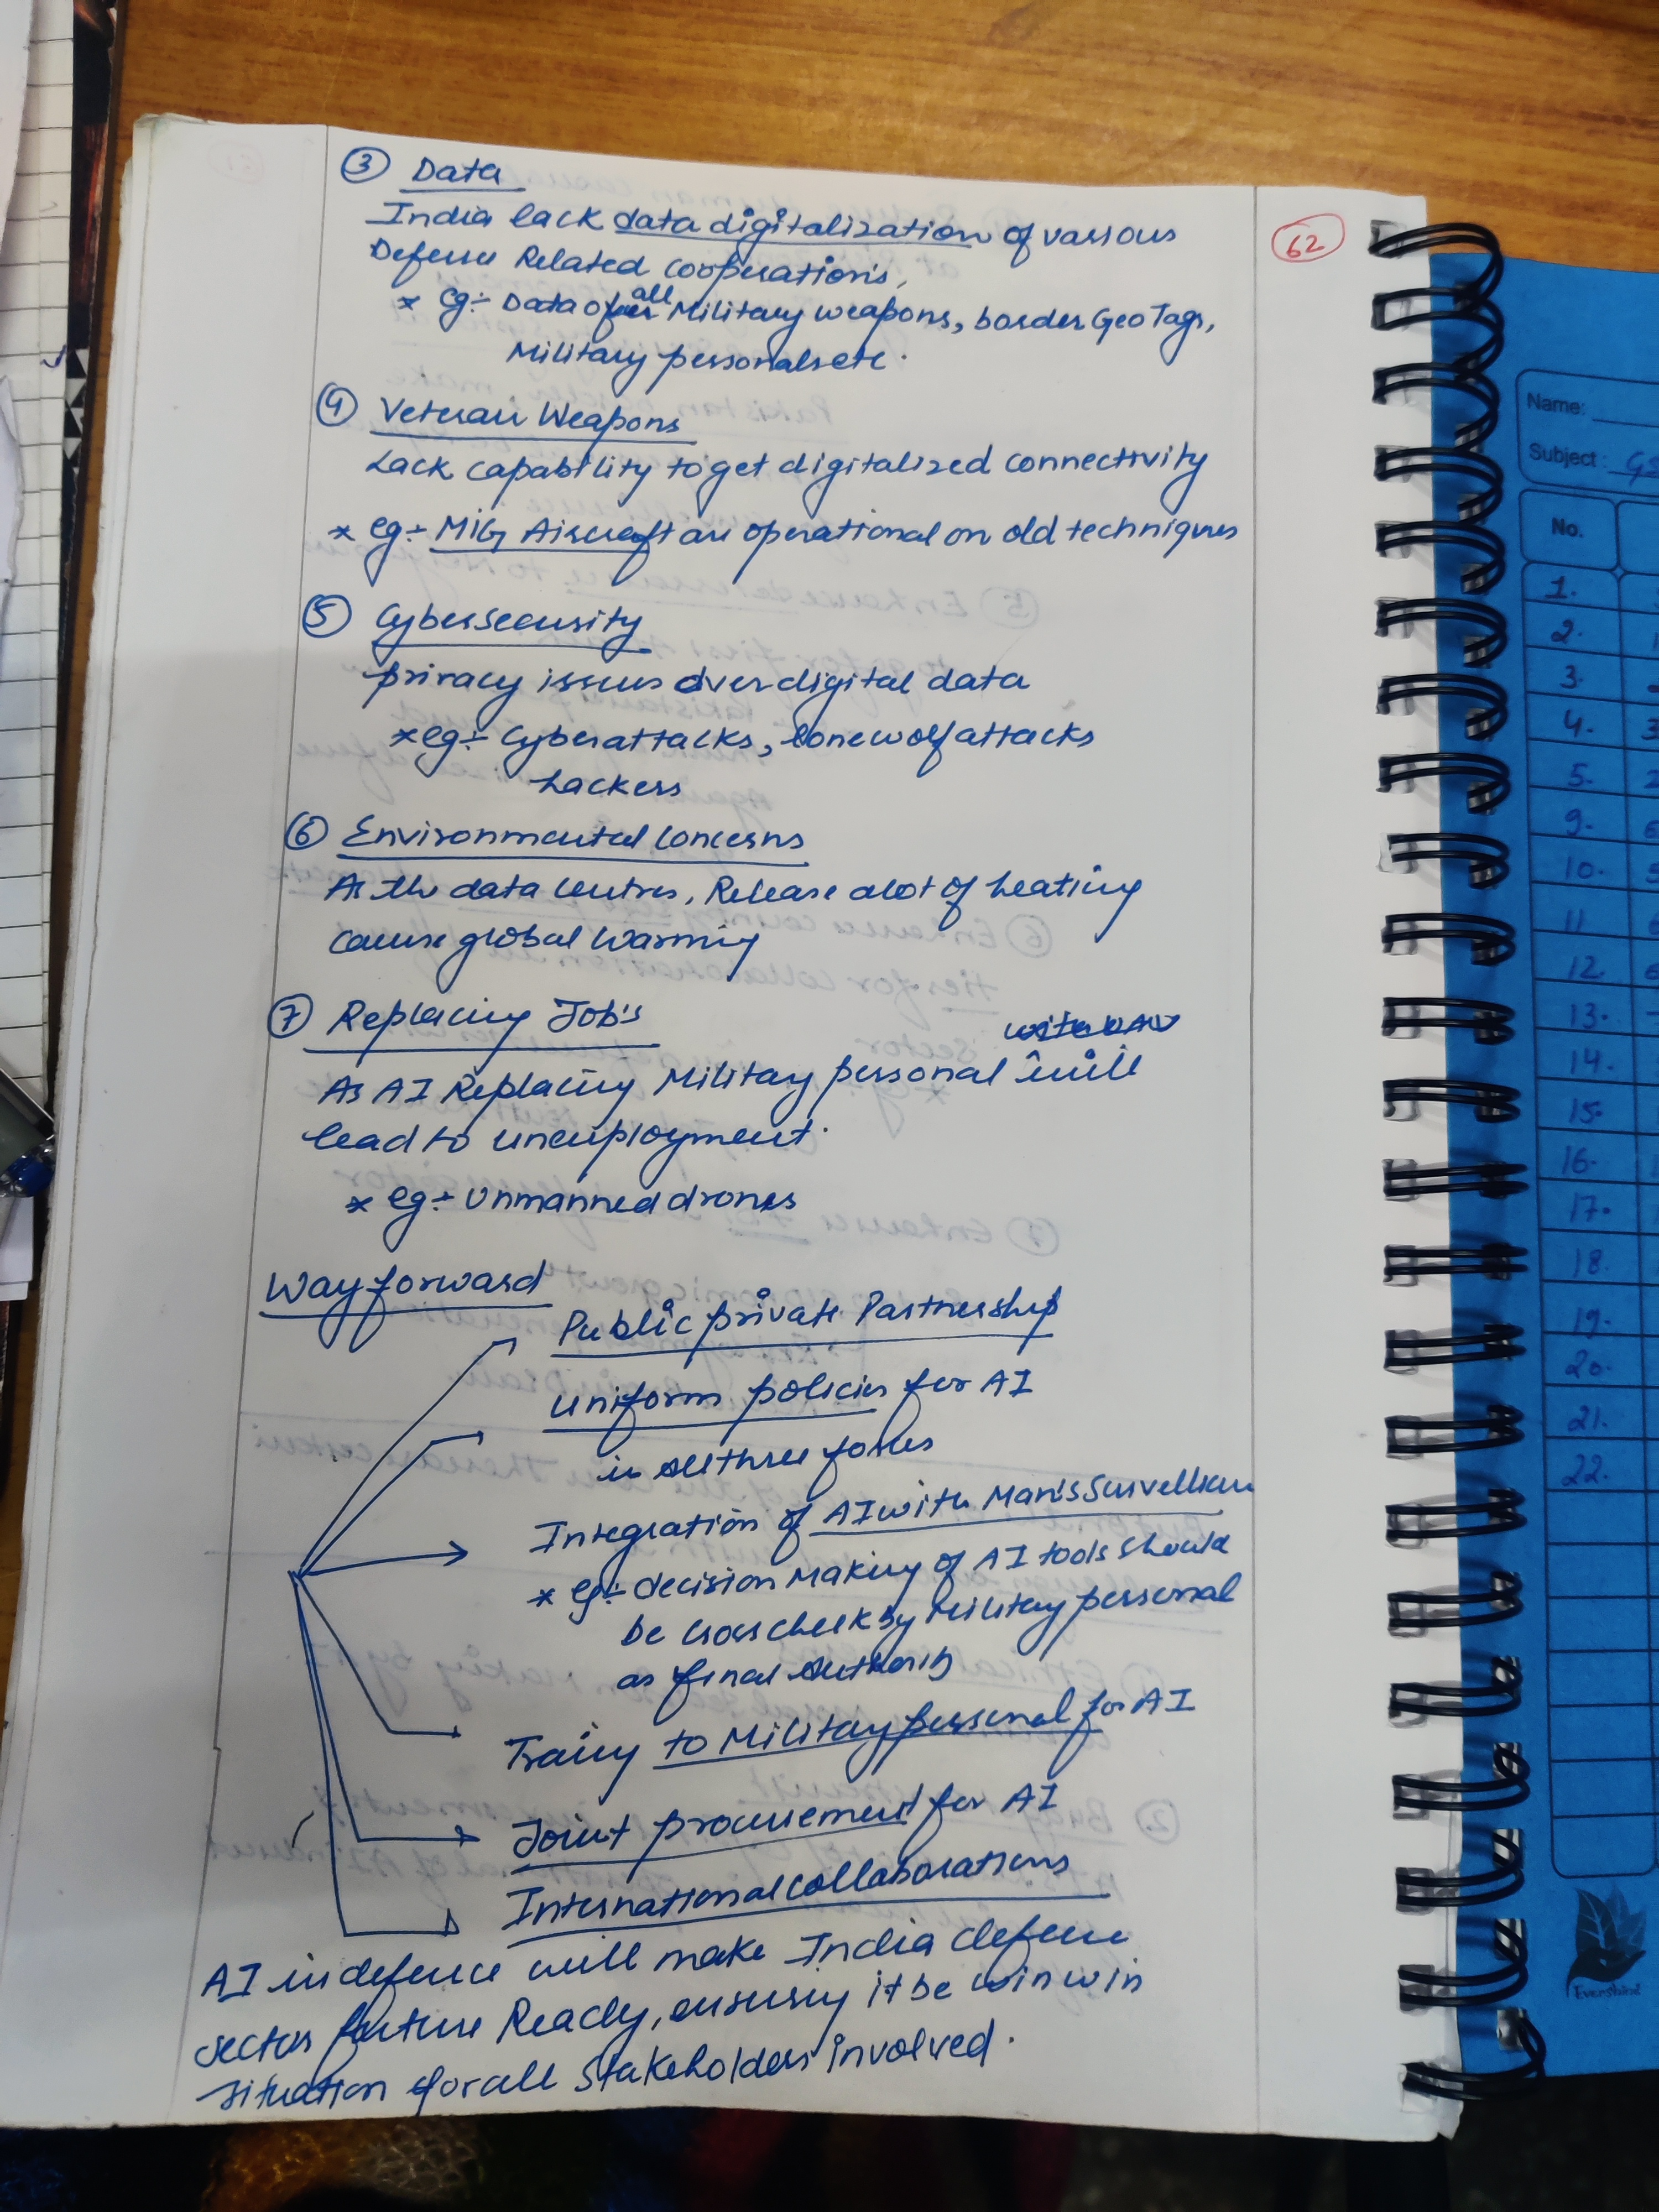 ③ Data
India lack data digitalization of various
Defence Related cooperations,
* eg:- Data of all Military weapons, border Geo Tags,
Military personals etc.
④ Veteran Weapons
Lack capability to get digitalized connectivity
* eg:- MiG Aircraft are operational on old techniques
⑤ Cybersecurity
privacy issues over digital data
* eg:- Cyberattacks, lone wolf attacks
hackers
⑥ Environmental Concerns
As the data centres, Release alot of heating
cause global warming
⑦ Replacing Job's
As AI Replacing Military personal will
lead to unemployment.
* eg:- Unmanned drones
Way forward
Public private Partnership
uniform policies for AI
in all three forces
Integration of AI with Man's Survellian
* eg:- decision Making of AI tools should
be cross check by Military personal
as final Authority
Traing to Military personal for AI
Joint procurement for AI
International collaborations
AI in defence will make India defence
sector future Ready, ensuring it be win win
situation for all stakeholders involved.
62
Name:
Subject: GS
No.
1.
2.
3.
4.
5.
9.
10.
11
12.
13.
14.
15.
16.
17.
18.
19.
20.
21.
22.
Evershine